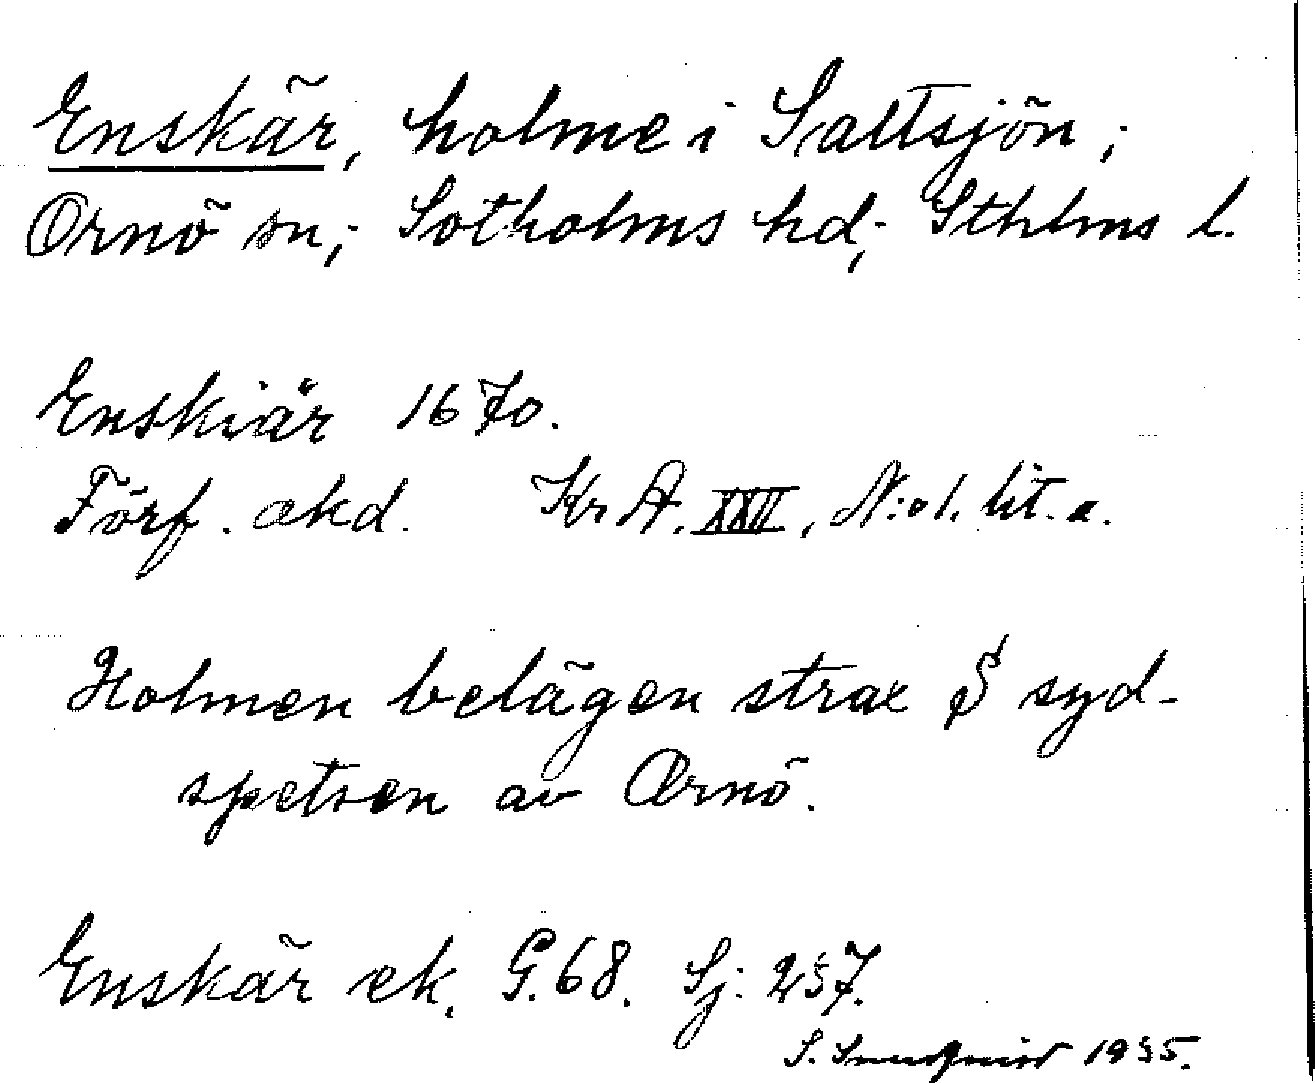 Enskär, holme i Saltsjön;
Ornö sn; Sotholms hd; Sthlms l.
Enskiär 1670.
Förf. okd. Kr A. XXVI, N:o 1. lit. a.
Holmen belägen strax S syd-
spetsen av Ornö.
Enskär ek. G. 68. Sj: 257.
S. 1935.